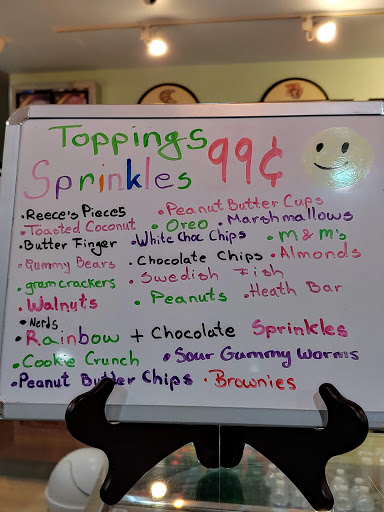 Toppings
Sprinkles 99¢
• Reece's Pieces • Peanut Butter Cups
• Toasted Coconut • Oreo • Marshmallows
• Butter Finger • White Choc Chips • M & M's
• Gummy Bears • Chocolate Chips • Almonds
• gram crackers • Swedish Fish
• Walnuts • Peanuts • Heath Bar
• Nerds
• Rainbow + Chocolate Sprinkles
• Cookie Crunch • Sour Gummy Worms
• Peanut Butter Chips • Brownies